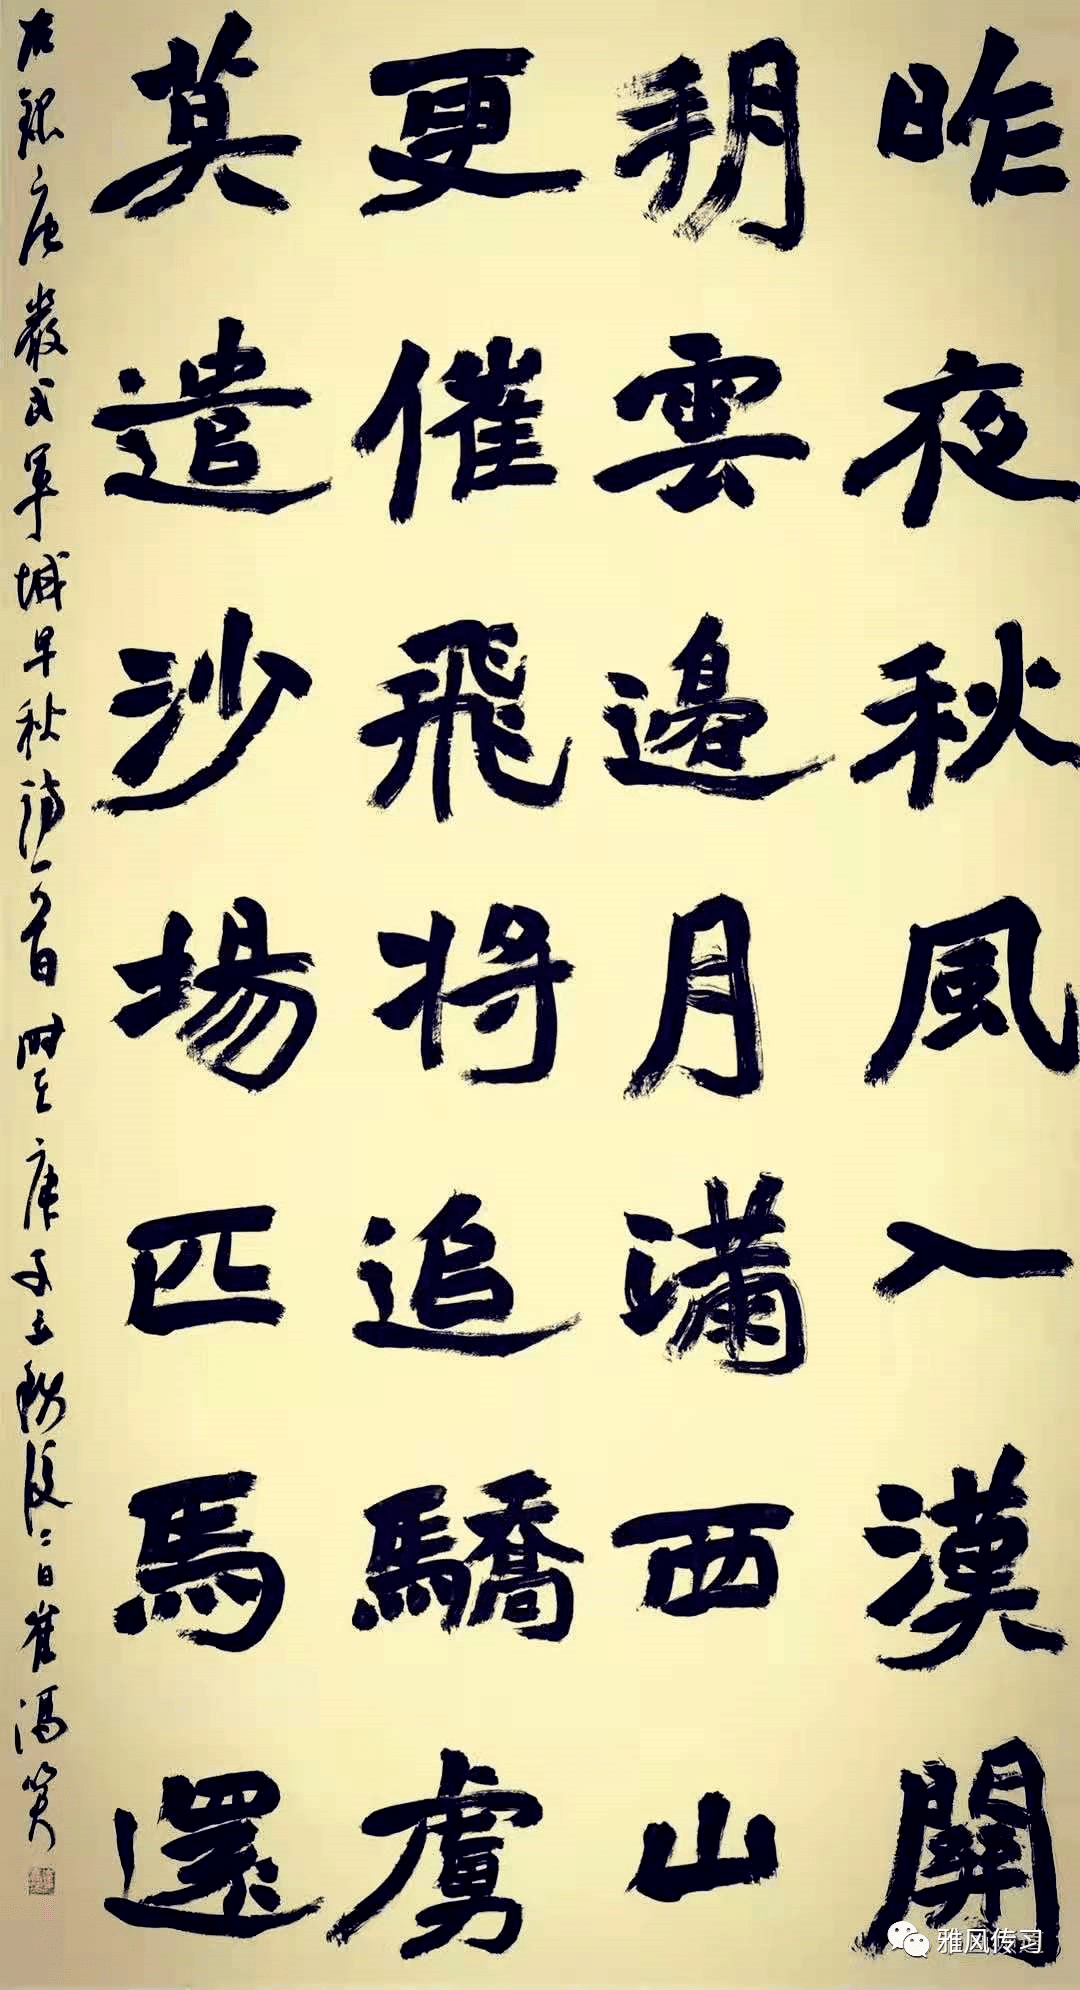 昨夜秋風入漢關
朔雲邊月滿西山
更催飛將追驕虜
莫遣沙場匹馬還
右錄唐嚴武軍城早秋詩一首時在庚子立秋後二日崔馮
雅风传习